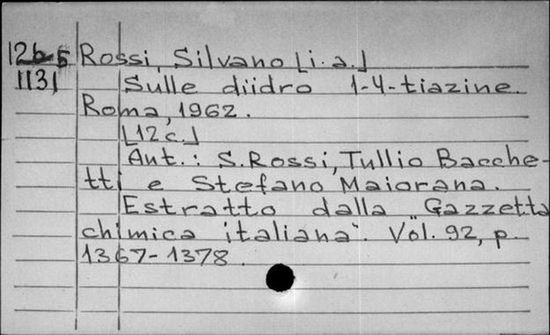 126 5 Rossi, Silvano [i. a.]
1131 Sulle diidro 1-4-tiazine.
Roma, 1962.
[12 c.]
Aut.: S. Rossi, Tullio Bacche-
tti e Stefano Maiorana.
Estratto dalla "Gazzetta
chimica italiana". Vol. 92, p.
1367-1378.